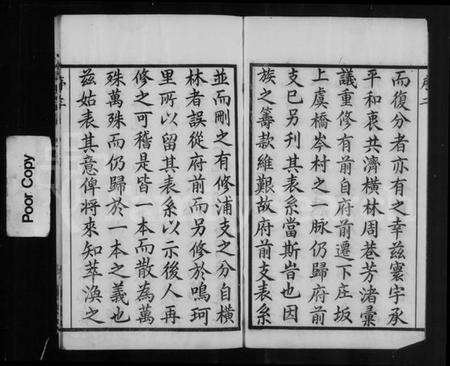 而復分者亦有之幸茲寰宇承
平和衷共濟橫林周巷芳渚彙
議重修有前自府前遷下庄坂
上虞橋岑村之一脉仍歸府前
支已另刊其表系當斯旹也因
族之籌款維艱故府前支表系
並而刪之有修浦支之分自橫
林者誤從府前而另修於鳴珂
里所以留其表系以示後人再
修之可稽是皆一本而散為萬
殊萬殊而仍歸於一本之義也
茲姑表其意俾將來知萃渙之
Poor Copy